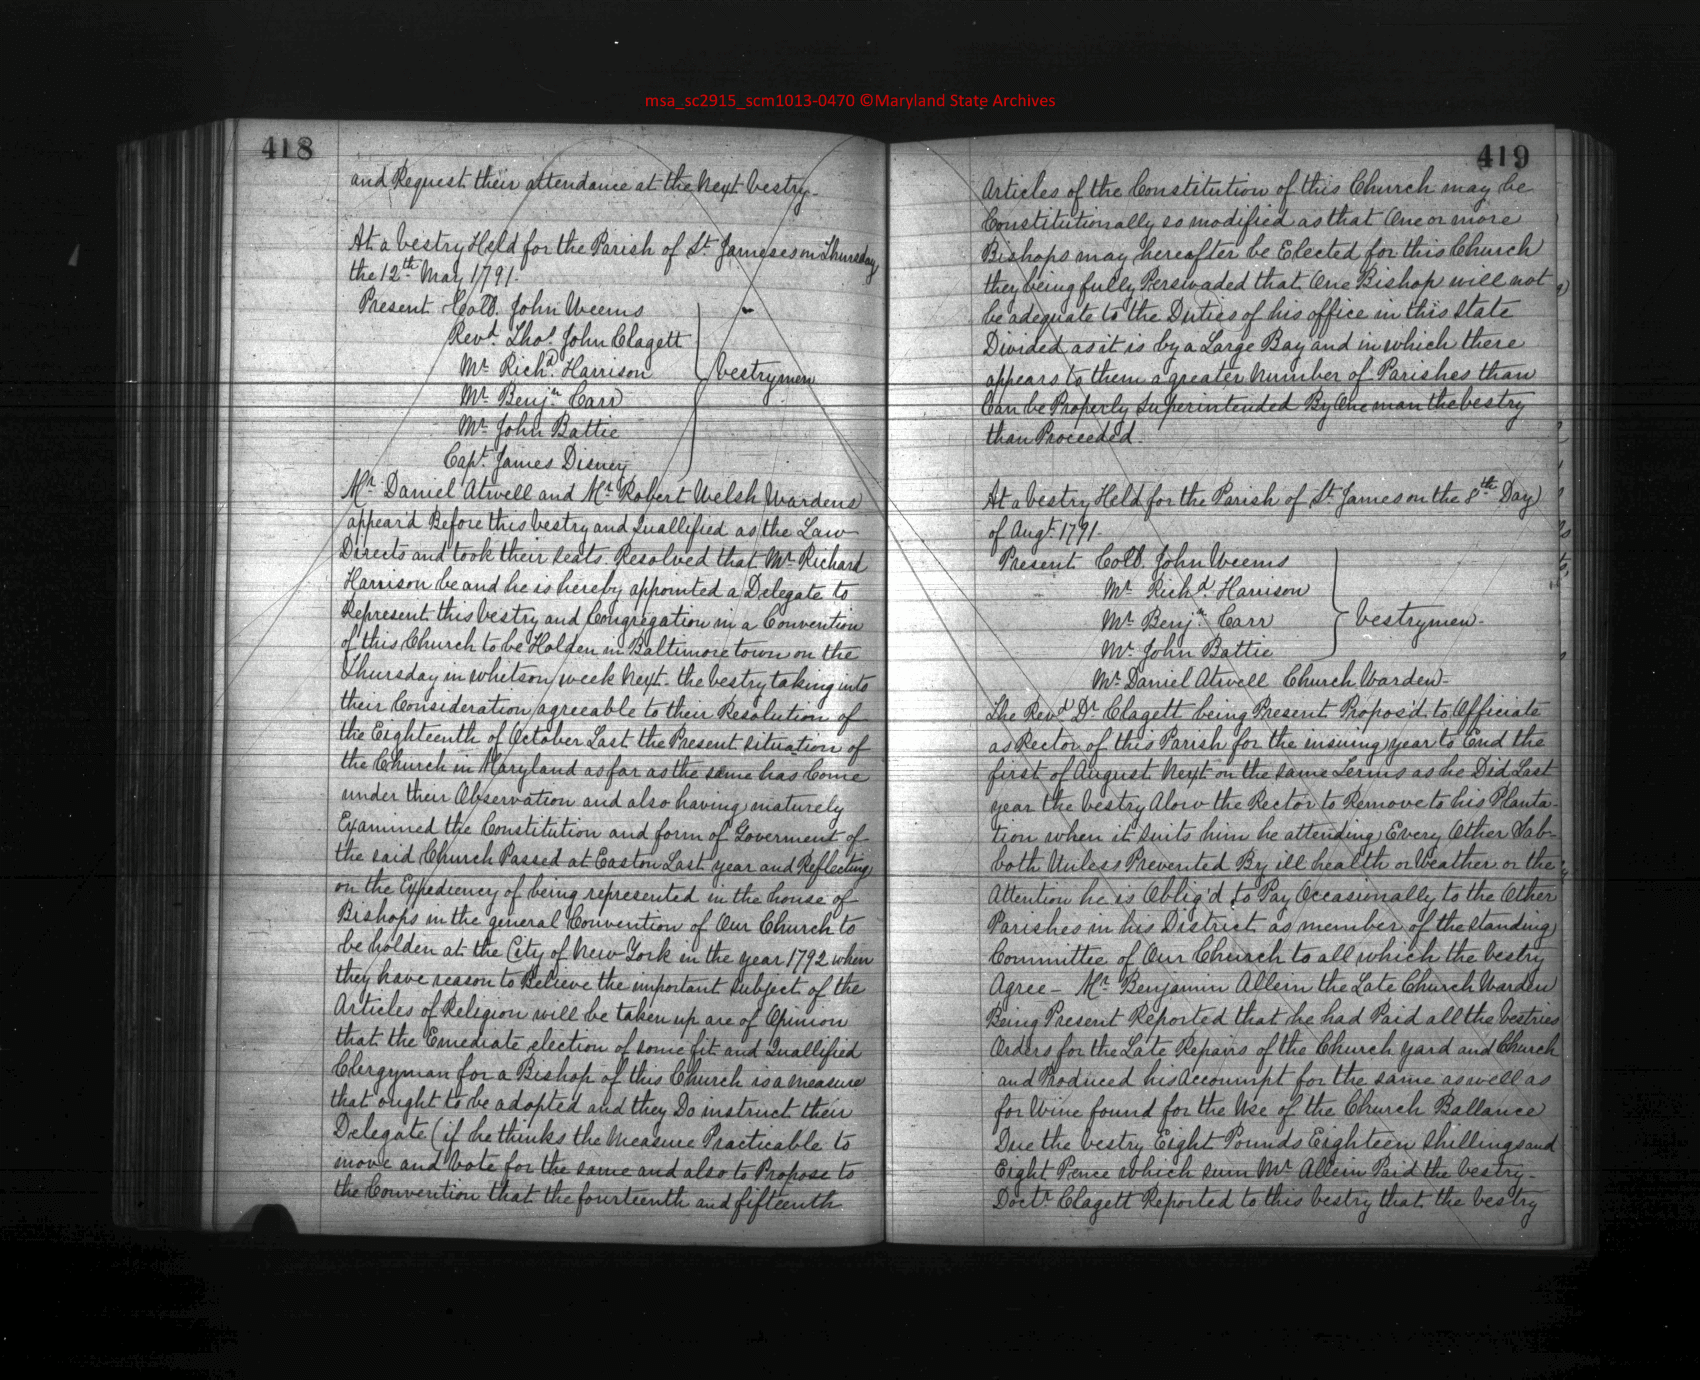 msa_sc2915_scm1013-0470 ©Maryland State Archives
418
and Request their attendance at the next vestry-
At a vestry Held for the Parish of St Jameses on Thursday
the 12th May 1791-
Present Coll. John Weems
Revd. Thos. John Clagett
Mr Richd. Harrison
vestrymen
Mr Benjn Carr
Mr John Battie
Capt James Disney
Mr Daniel Atwell and Mr Robert Welsh Wardens
appear'd Before this vestry and Quallified as the Law
Directs and took their seats. Resolved that Mr Richard
Harrison be and he is hereby appointed a Delegate to
Represent this vestry and Congregation in a Convention
of this Church to be Holden in Baltimore town on the
Thursday in whitson week next. the vestry taking into
their Consideration agreeable to their Resolution of
the Eighteenth of October Last the Present situation of
the Church in Maryland as far as the same has Come
under their Observation and also having maturely
Examined the Constitution and form of Goverment of
the said Church Passed at Easton Last year and Reflecting
on the Expediency of being represented in the house of
Bishops in the general Convention of Our Church to
be holden at the City of New York in the year 1792 when
they have reason to Believe the important subject of the
Articles of Religion will be taken up are of Opinion
that the Emediate election of some fit and Quallified
Clergyman for a Bishop of this Church is a measure
that ought to be adopted and they Do instruct their
Delegate (if he thinks the measure Practicable to
move and vote for the same and also to Propose to
the Convention that the fourteenth and fifteenth
419
Articles of the Constitution of this Church may be
Constitutionally so modified as that One or more
Bishops may hereafter be Elected for this Church
they being fully Perswaded that One Bishop will not
be adequate to the Duties of his office in this State
Divided as it is by a Large Bay and in which there
appears to them a greater number of Parishes than
Can be Properly Superintended By One man the vestry
than Proceeded.
At a vestry Held for the Parish of St James on the 8th Day
of Augt 1791-
Present Coll. John Weems
Mr Richd Harrison
Mr Benjn Carr
vestrymen-
Mr John Battie
Mr Daniel Atwell Church Warden-
The Revd Dr Clagett being Present Propos'd to Officiate
as Rector of this Parish for the insuing year to End the
first of August Next on the same Terms as he Did Last
year the vestry Alow the Rector to Remove to his Planta-
tion when it suits him he attending Every Other Sab-
both Unless Prevented By ill health or Weather or the
Attention he is Oblig'd to Pay Occasionally to the Other
Parishes in his District as member of the standing
Committee of Our Church to all which the vestry
Agree- Mr Benjamin Allein the Late Church Warden
Being Present Reported that he had Paid all the vestries
Orders for the Late Repairs of the Church yard and Church
and Produced his Accoumpt for the same as well as
for Wine found for the Use of the Church Ballance
Due the vestry Eight Pounds Eighteen shillings and
Eight Pence which sum Mr Allein Paid the vestry-
Doctr Clagett Reported to this vestry that the vestry